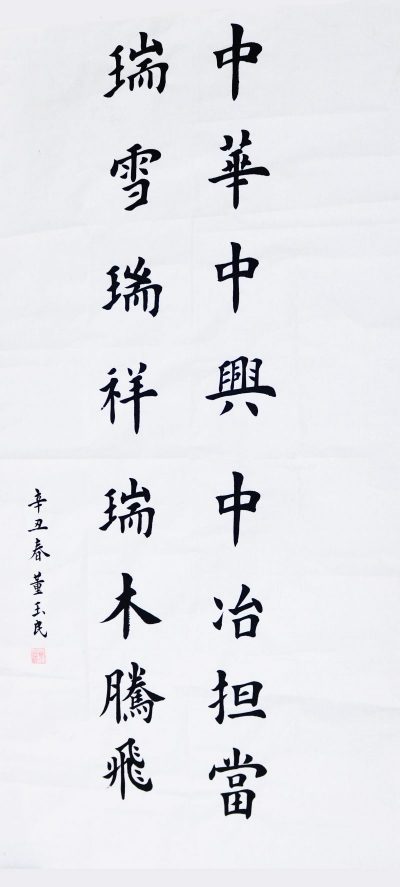 中華中興中冶担當
瑞雪瑞祥瑞木騰飛
辛丑春董玉民